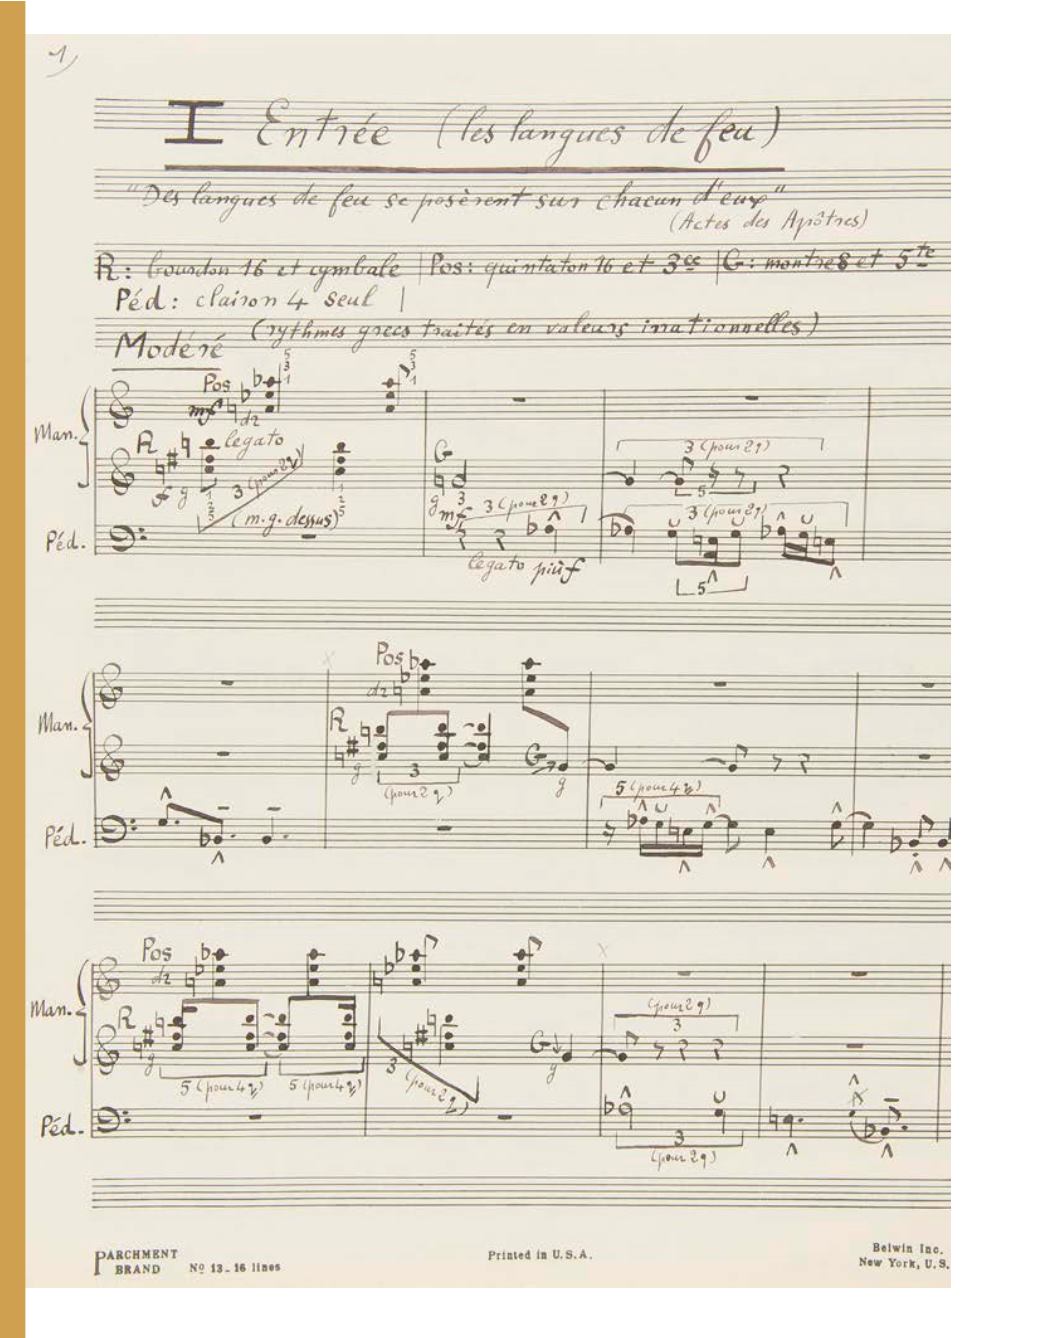 1)
I Entrée (les langues de feu)
"Des langues de feu se posèrent sur chacun d'eux"
(Actes des Apôtres)
R: bourdon 16 et cymbale | Pos: quintaton 16 et 3ce | G: montre 8 et 5te
Péd: clairon 4 seul |
(rythmes grecs traités en valeurs irrationnelles)
Modéré
Pos
mf
dr
Man.
R
legato
3 (pour 2)
f g
(m.g. dessus)
G
g
mf
3 (pour 2)
3 (pour 2)
5
3 (pour 2)
Péd.
legato più f
5
Pos
dr
Man.
R
g
3
(pour 2)
G
g
5 (pour 4)
Péd.
Pos
dr
Man.
R
g
5 (pour 4) 5 (pour 4)
3 (pour 2)
G
g
(pour 2)
3
Péd.
3
(pour 2)
PARCHMENT BRAND
Nº 13-16 lines
Printed in U.S.A.
Belwin Inc.
New York, U.S.